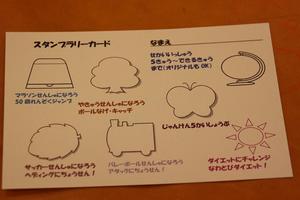 スタンプラリーカード
なまえ
せかいいっしゅう
5きゅう〜できるきゅう
まで(オリジナルも OK)
マラソンせんしゅになろう
50回れんぞくジャンプ
やきゅうせんしゅになろう
ボールなげ・キャッチ
じゃんけん5かいしょうぶ
サッカーせんしゅになろう
ヘディングにちょうせん!
バレーボールせんしゅになろう
アタックにちょうせん!
ダイエットにチャレンジ
なわとびダイエット!